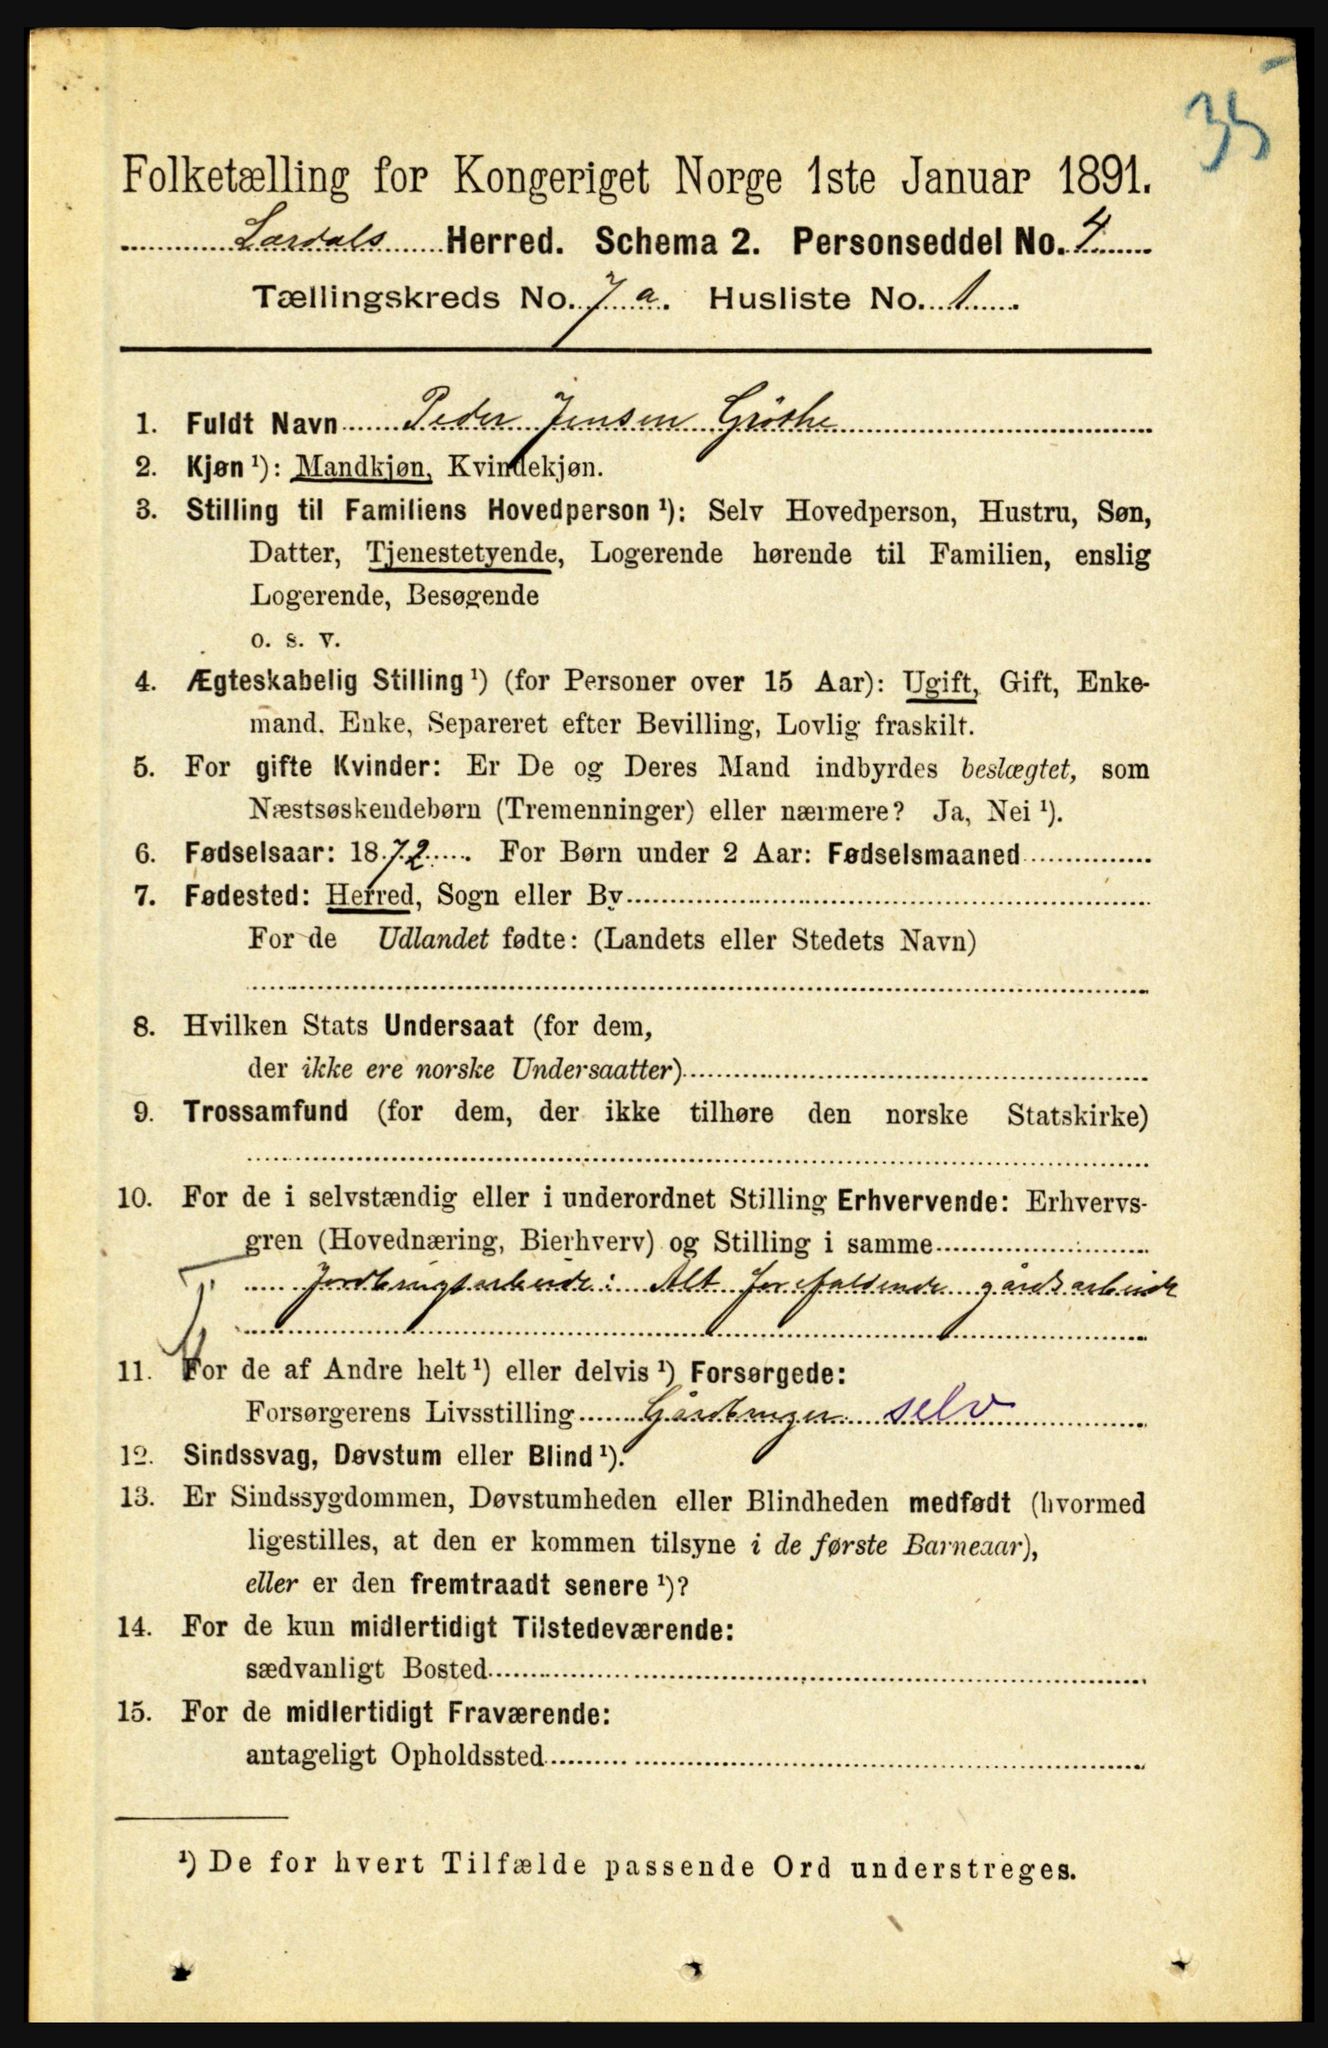 35
Folketælling for Kongeriget Norge 1ste Januar 1891.
Lærdals Herred. Schema 2. Personseddel No. 4
Tællingskreds No. 7 a. Husliste No. 1
1. Fuldt Navn Peder Jensen Grøthe
2. Kjøn ¹): Mandkjøn, Kvindekjøn.
3. Stilling til Familiens Hovedperson ¹): Selv Hovedperson, Hustru, Søn,
Datter, Tjenestetyende, Logerende hørende til Familien, enslig
Logerende, Besøgende
o. s. v.
4. Ægteskabelig Stilling ¹) (for Personer over 15 Aar): Ugift, Gift, Enke-
mand, Enke, Separeret efter Bevilling, Lovlig fraskilt.
5. For gifte Kvinder: Er De og Deres Mand indbyrdes beslægtet, som
Næstsøskendebørn (Tremenninger) eller nærmere? Ja, Nei ¹).
6. Fødselsaar: 1872. For Børn under 2 Aar: Fødselsmaaned
7. Fødested: Herred, Sogn eller By
For de Udlandet fødte: (Landets eller Stedets Navn)
8. Hvilken Stats Undersaat (for dem,
der ikke ere norske Undersaatter)
9. Trossamfund (for dem, der ikke tilhøre den norske Statskirke)
10. For de i selvstændig eller i underordnet Stilling Erhvervende: Erhvervs-
gren (Hovednæring, Bierhverv) og Stilling i samme
Jordbrugsarbeide: Alt forefaldende gårdsarbeide
11. For de af Andre helt ¹) eller delvis ¹) Forsørgede:
Forsørgerens Livsstilling Gårdbruger selv
12. Sindssvag, Døvstum eller Blind ¹).
13. Er Sindssygdommen, Døvstumheden eller Blindheden medfødt (hvormed
ligestilles, at den er kommen tilsyne i de første Barneaar),
eller er den fremtraadt senere ¹)?
14. For de kun midlertidigt Tilstedeværende:
sædvanligt Bosted
15. For de midlertidigt Fraværende:
antageligt Opholdssted
¹) De for hvert Tilfælde passende Ord understreges.